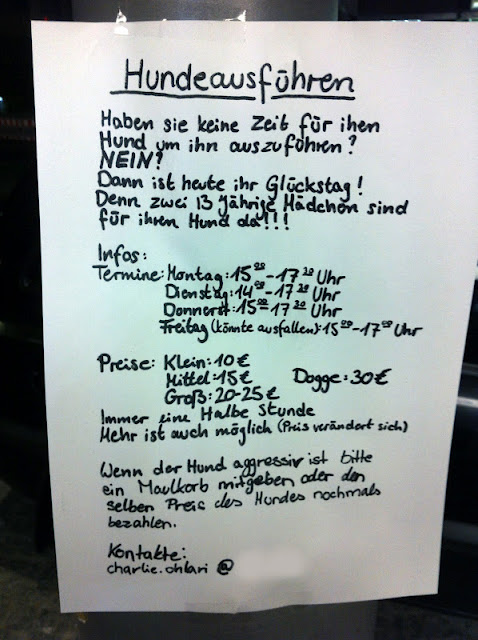 Hundeausführen
Haben sie keine Zeit für ihen
Hund um ihn auszuführen?
NEIN?
Dann ist heute ihr Glückstag!
Denn zwei 13 jährige Mädchen sind
für ihren Hund da!!!
Infos:
Termine: Montag: 15⁰⁰-17³⁰ Uhr
Dienstag: 14⁰⁰-17³⁰ Uhr
Donnerst: 15⁰⁰-17³⁰ Uhr
Freitag (könnte ausfallen): 15⁰⁰-17⁰⁰ Uhr
Preise: Klein: 10€
Mittel: 15€ Dogge: 30€
Groß: 20-25€
Immer eine Halbe Stunde
Mehr ist auch möglich (Preis verändart sich)
Wenn der Hund aggressiv ist bitte
ein Maulkorb mitgeben oder den
selben Preis des Hundes nochmals
bezahlen.
Kontakte:
charlie.ohlari @